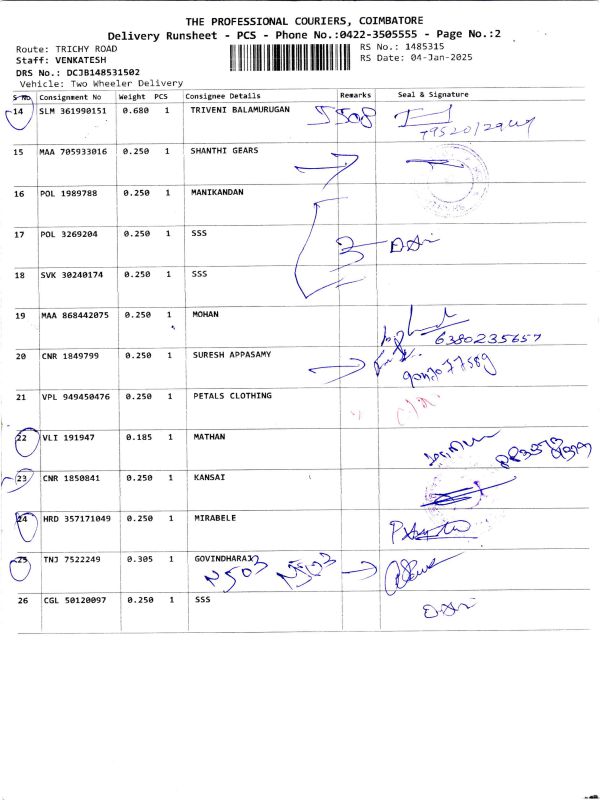 THE PROFESSIONAL COURIERS, COIMBATORE
Delivery Runsheet - PCS - Phone No.:0422-3505555 - Page No.:2
Route: TRICHY ROAD
RS No.: 1485315
Staff: VENKATESH
RS Date: 04-Jan-2025
DRS No.: DCJB148531502
Vehicle: Two Wheeler Delivery
S No Consignment No Weight PCS Consignee Details Remarks Seal & Signature
14 SLM 361990151 0.680 1 TRIVENI BALAMURUGAN
15 MAA 705933016 0.250 1 SHANTHI GEARS
16 POL 1989788 0.250 1 MANIKANDAN
17 POL 3269204 0.250 1 SSS
18 SVK 30240174 0.250 1 SSS
19 MAA 868442075 0.250 1 MOHAN
6380235657
20 CNR 1849799 0.250 1 SURESH APPASAMY
21 VPL 949450476 0.250 1 PETALS CLOTHING
22 VLI 191947 0.185 1 MATHAN
23 CNR 1850841 0.250 1 KANSAI
24 HRD 357171049 0.250 1 MIRABELE
25 TNJ 7522249 0.305 1 GOVINDHARAJ
N503 N503
26 CGL 50120097 0.250 1 SSS